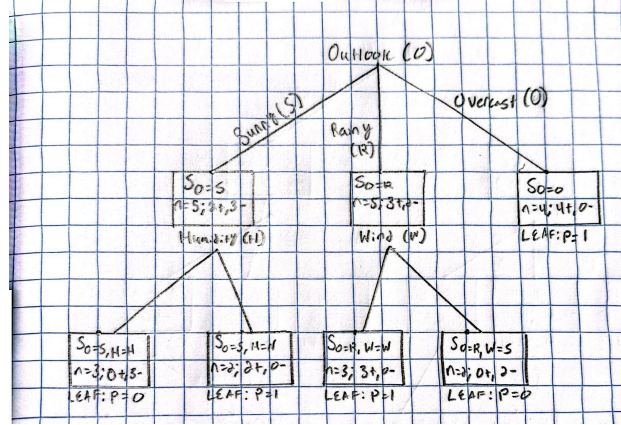 Outlook (O)
Sunny (S)
Rainy
(R)
Overcast (O)
S₀=S
n=5; 2+,3-
Humidity (H)
S₀=R
n=5; 3+,2-
Wind (W)
S₀=O
n=4; 4+,0-
LEAF: P=1
S₀=S, H=H
n=3; 0+,3-
LEAF: P=0
S₀=S, H=N
n=2; 2+,0-
LEAF: P=1
S₀=R, W=W
n=3; 3+,0-
LEAF: P=1
S₀=R, W=S
n=2; 0+, 2-
LEAF: P=0